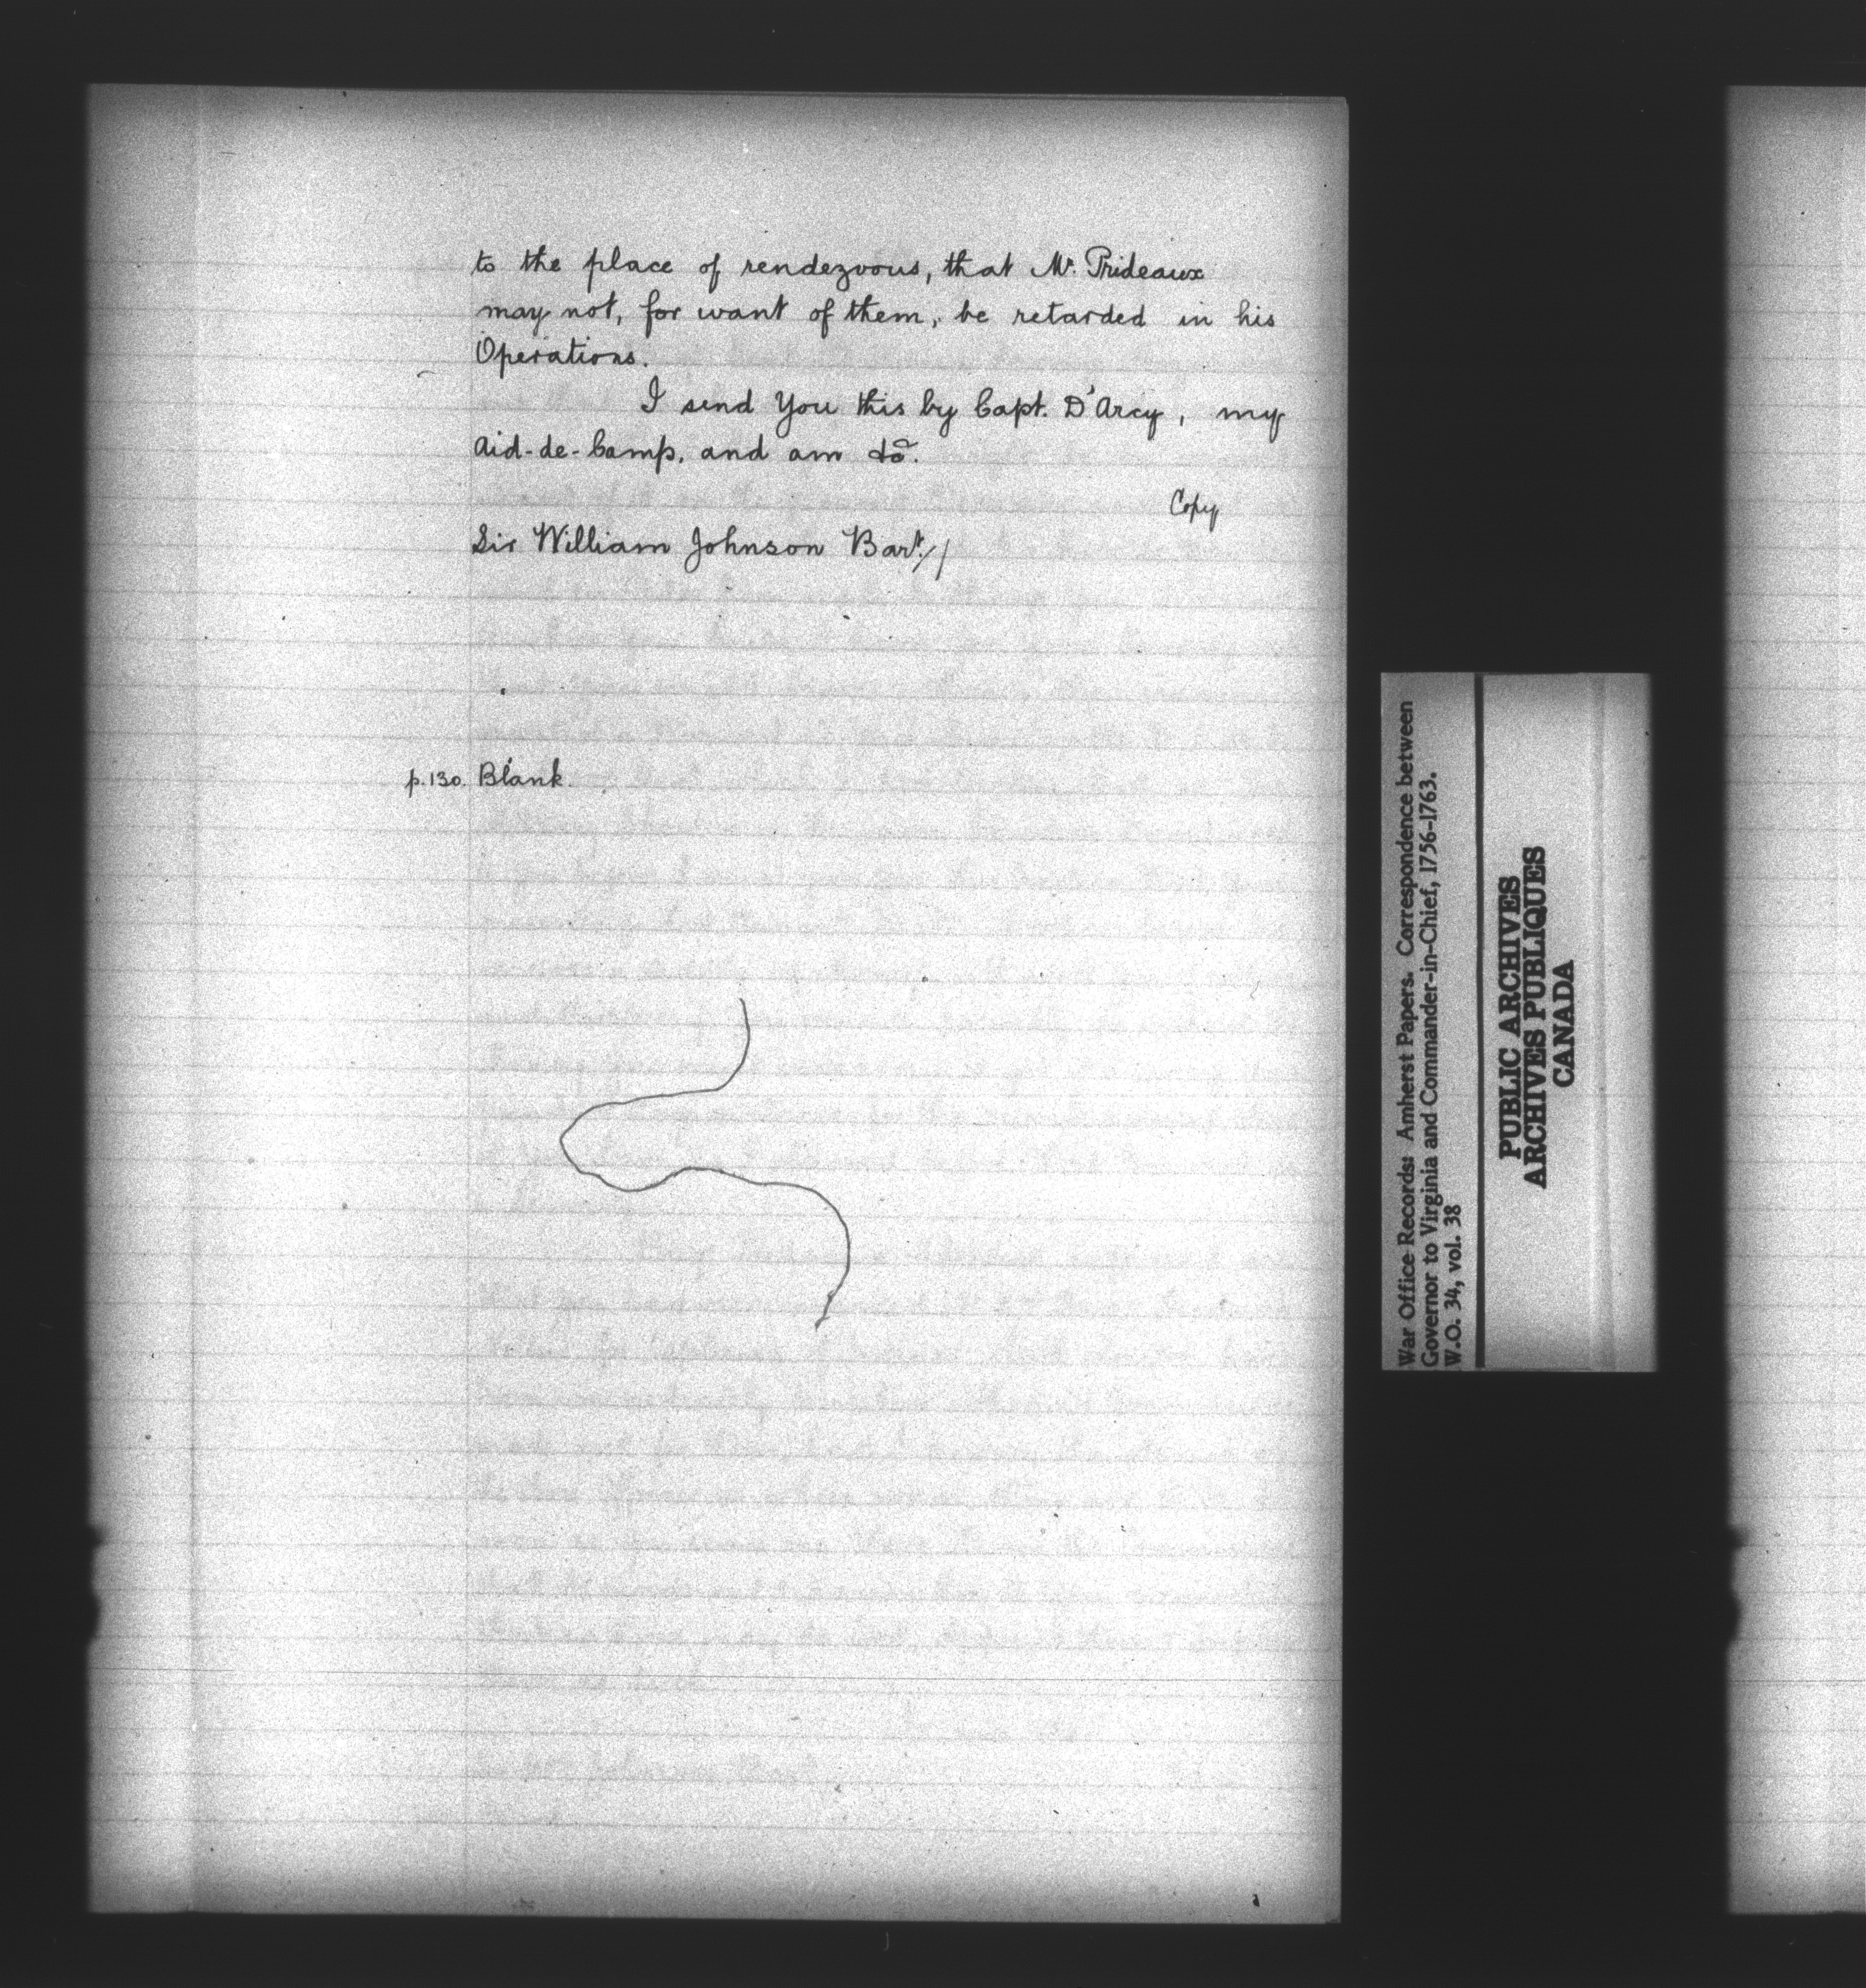 to the place of rendezvous, that Mr. Prideaux
may not, for want of them, be retarded in his
Operations.
I send You this by Capt. D'Arcy, my
Aid-de-Camp, and am &c.
Copy
Sir William Johnson Bart.//
p.130. Blank.
War Office Records: Amherst Papers. Correspondence between
Governor to Virginia and Commander-in-Chief, 1756-1763.
W.O. 34, vol. 38
PUBLIC ARCHIVES
ARCHIVES PUBLIQUES
CANADA